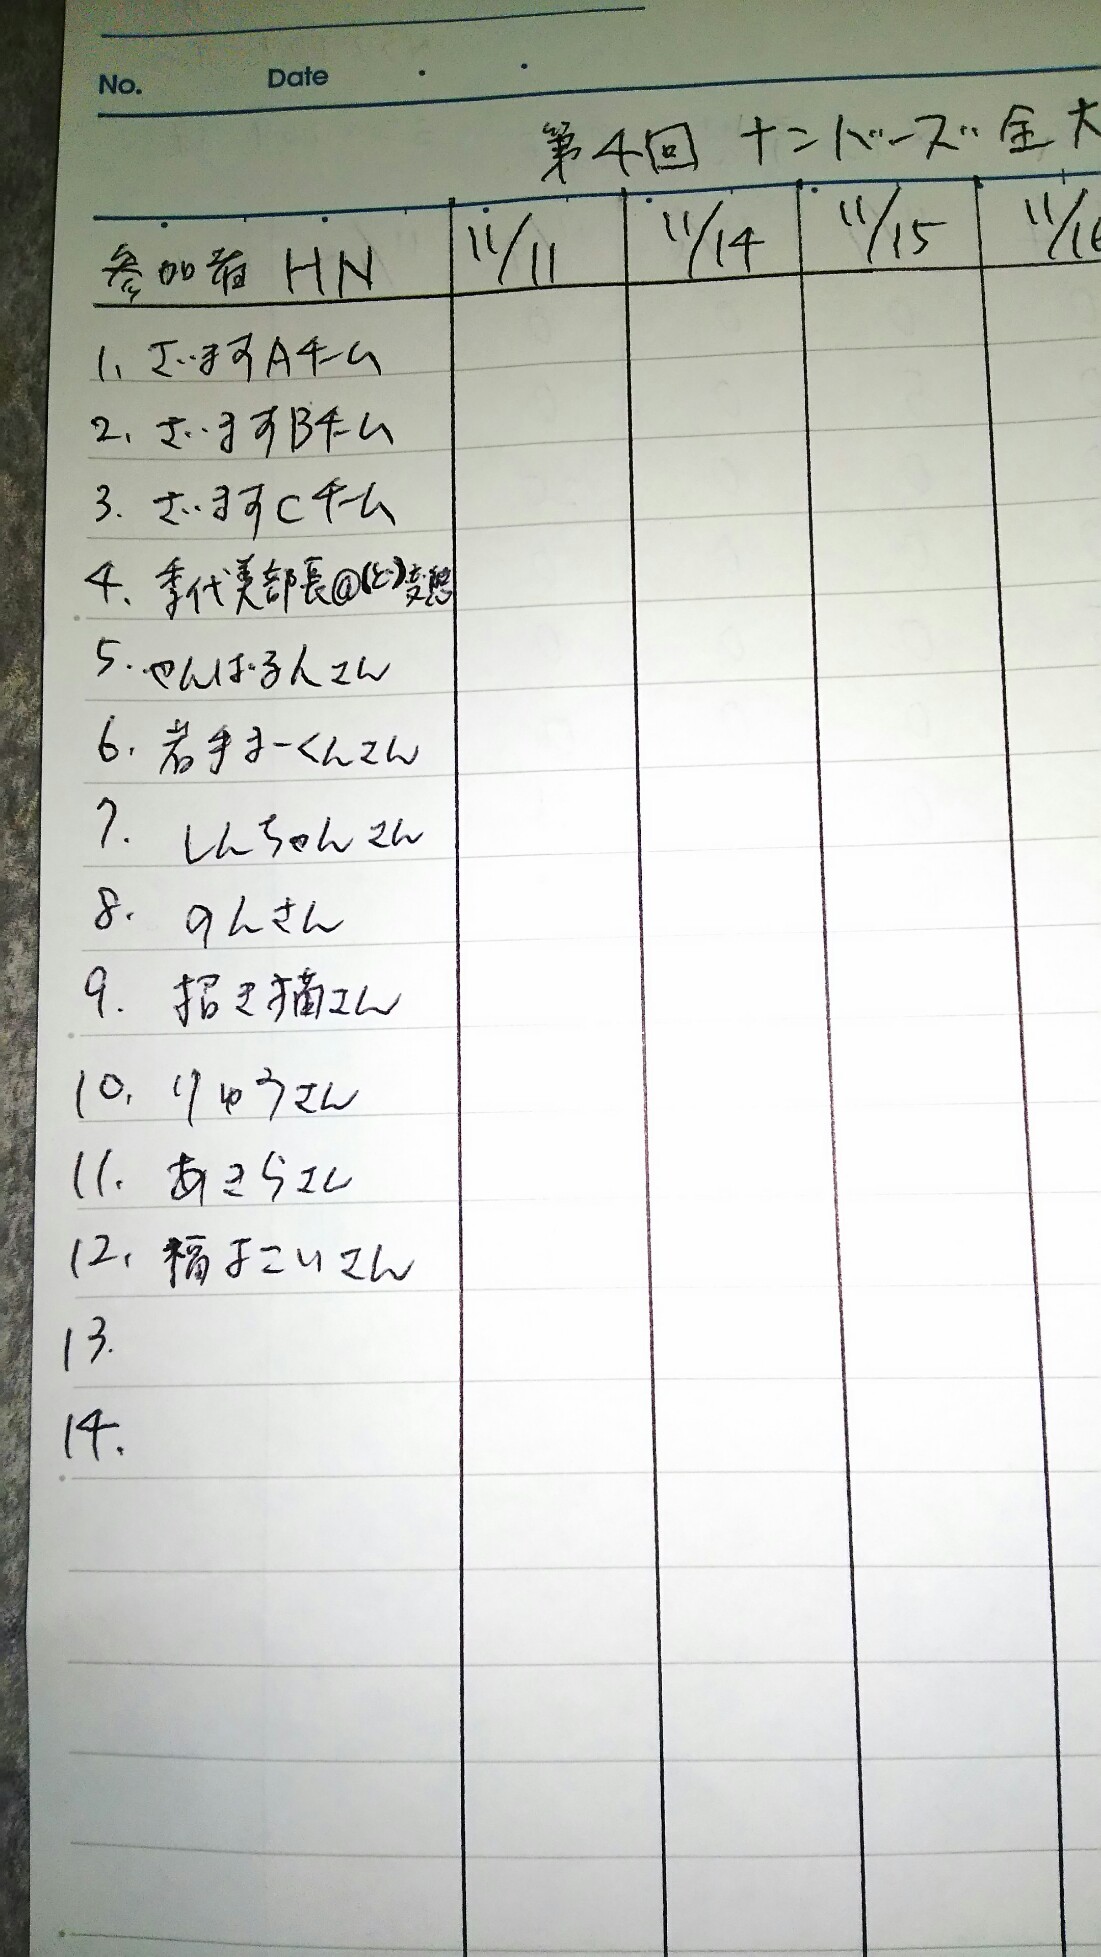 No. Date
第4回 ナンバーズ 全 大
参加者 HN 11/11 11/14 11/15 11/16
1. ざますAチーム
2. ざますBチーム
3. ざますCチーム
4. 季代美部長@(ど)変態
5. やんばるんさん
6. 岩手まーくんさん
7. しんちゃんさん
8. のんさん
9. 招き猫さん
10. りゅうさん
11. あきらさん
12. 福よこいさん
13.
14.